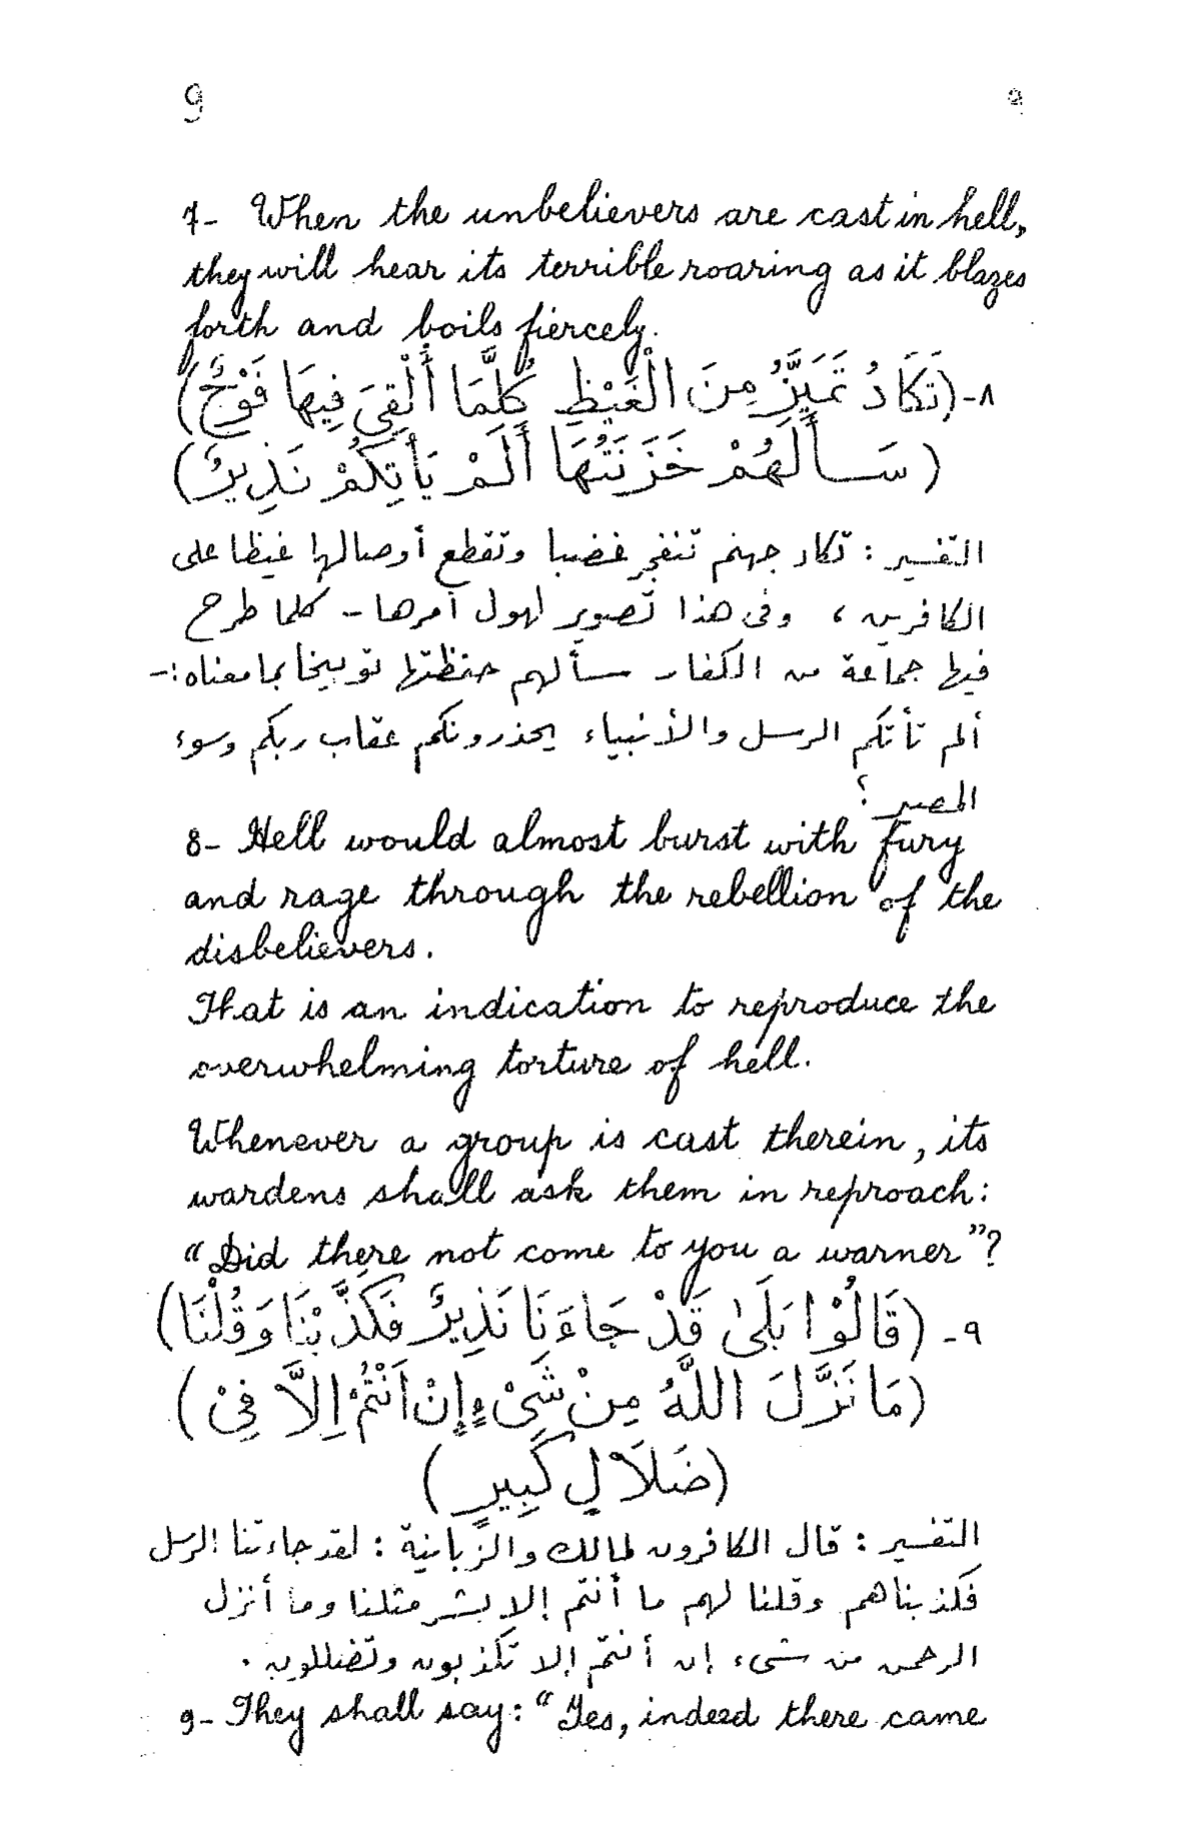 9 ٩
7- When the unbelievers are cast in hell,
they will hear its terrible roaring as it blazes
forth and boils fiercely.
٨- (تَكَادُ تَمَيَّزُ مِنَ الْغَيْظِ كُلَّمَا أُلْقِىَ فِيهَا فَوْجٌ)
(سَأَلَهُمْ خَزَنَتُهَا أَلَمْ يَأْتِكُمْ نَذِيرٌ)
التفسير : تكاد جهنم تنفجر غضبا وتقطع أوصالها غيظا على
الكافرين ، وفى هذا تصوير لهول أمرها - كلما طرح
فيها جماعة من الكفار سألهم حفظتها توبيخا بما معناه :-
ألم تأتكم الرسل والأنبياء يحذرونكم عقاب ربكم وسوء
المصير ؟
8- Hell would almost burst with fury
and rage through the rebellion of the
disbelievers.
That is an indication to reproduce the
overwhelming torture of hell.
Whenever a group is cast therein, its
wardens shall ask them in reproach:
"Did there not come to you a warner"?
٩- (قَالُوْا بَلَىٰ قَدْ جَاءَنَا نَذِيرٌ فَكَذَّبْنَا وَقُلْنَا)
(مَا نَزَّلَ اللَّهُ مِنْ شَىْءٍ إِنْ اَنْتُمْ اِلاَّ فِىْ)
(ضَلَالٍ كَبِيرٍ)
التفسير : قال الكافرون لمالك والزبانية : لقد جاءتنا الرسل
فكذبناهم وقلنا لهم ما أنتم إلا بشر مثلنا وما أنزل
الرحمن من شىء إن أنتم إلا تكذبون وتضللون .
9- They shall say: "Yes, indeed there came